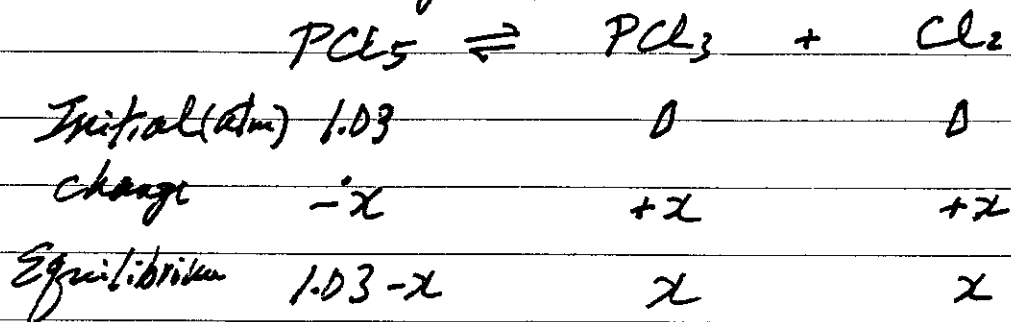 PCl5 ⇌ PCl3 + Cl2
Initial(atm) 1.03 0 0
change -x +x +x
Equilibrium 1.03-x x x